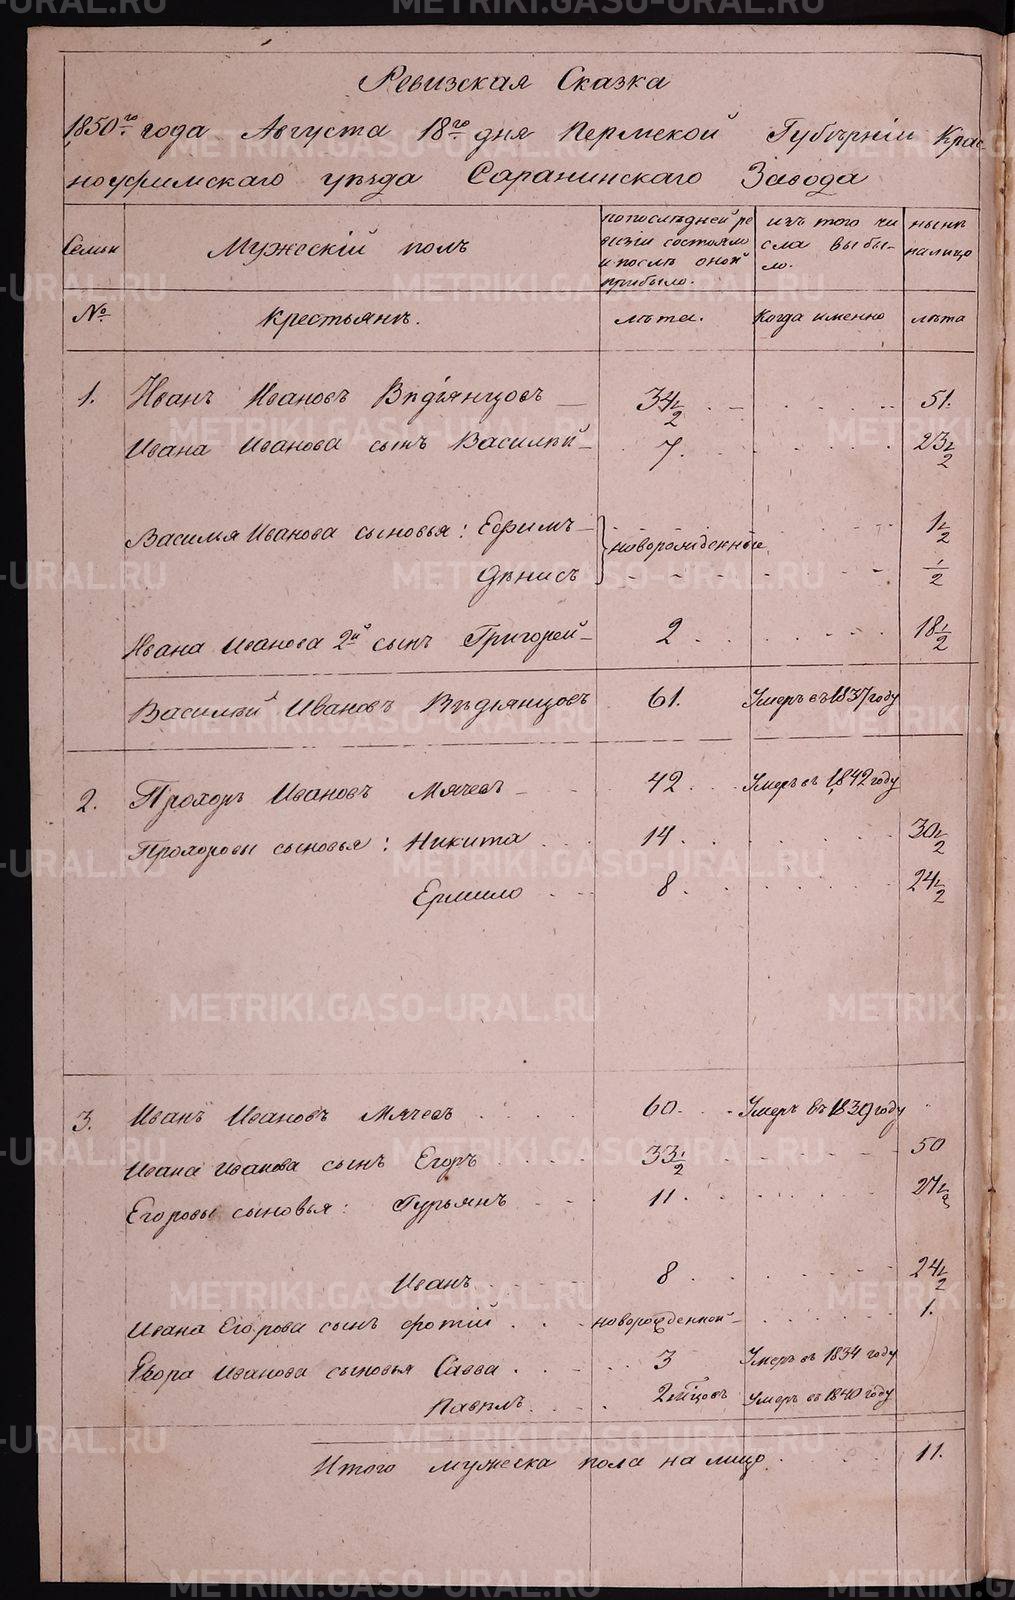 Ревизская Сказка
1850го года Августа 18го дня Пермской Губѣрніи Крас
ноуфимскаго уѣзда Саранинскаго Завода
Семьи
Мужескій полъ
по послѣдней ре
визіи состояло
и послѣ оной
прибыло.
изъ того чи
сла выбы-
ло.
нынѣ
налицо
№
Крестьянѣ.
лѣта.
Когда именно
лѣта
1. Иванъ Ивановъ Вѣдіянцовъ 34 1/2 51.
Ивана Иванова сынъ Василѣй 7. 23 1/2
Василья Иванова сыновья: Ефимъ новорожденные 1 1/2
Дѣнисъ 1/2
Ивана Иванова 2й сынъ Григорей 2 18 1/2
Василѣй Ивановъ Вѣдіянцовъ 61. Умеръ въ 1837 году
2. Прохоръ Ивановъ Мячевъ 42 Умеръ въ 1842 году
Прохоровы сыновья: Никита 14 30 1/2
Ермило 8 24 1/2
3. Иванъ Ивановъ Мячевъ 60 Умеръ въ 1839 году
Ивана Иванова сынъ Егоръ 33 1/2 50
Егоровы сыновья: Гурьянъ 11 27 1/2
Иванъ 8 24 1/2
Ивана Егорова сынъ Фотій новорожденной 1.
Егора Иванова сыновья Савва 3 Умеръ въ 1834 году
Павѣлъ Умеръ въ 1840 году
Итого мужеска пола на лицо 11.
METRIKI.GASO-URAL.RU